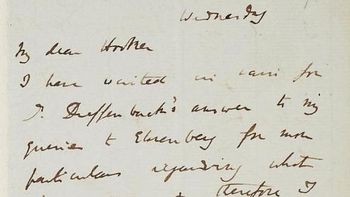 Wednesday
My dear Hooker
I have waited in vain for
Dr Dieffenbach's answer to my
queries to Ehrenberg for more
particulars regarding what
therefore I